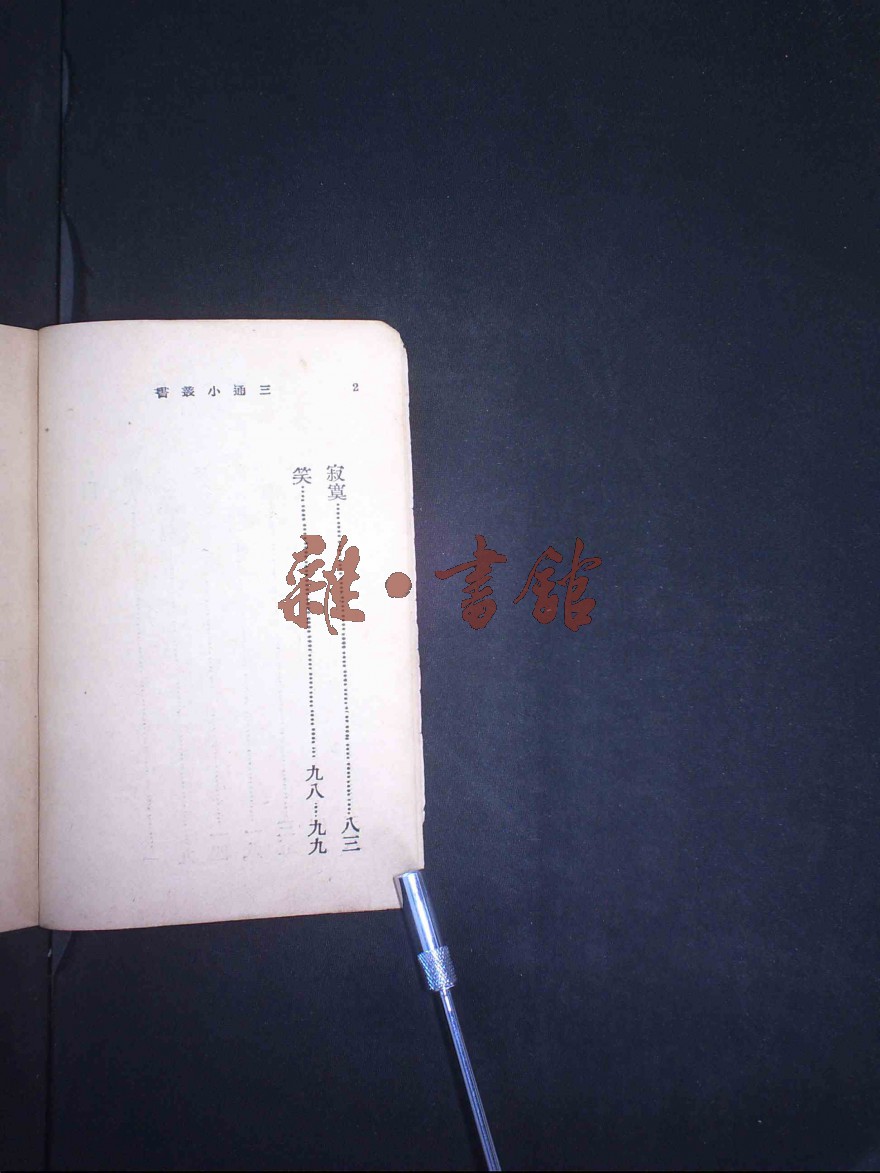 三通小叢書 2
寂寞……八三
笑……九八……九九
雜·書館